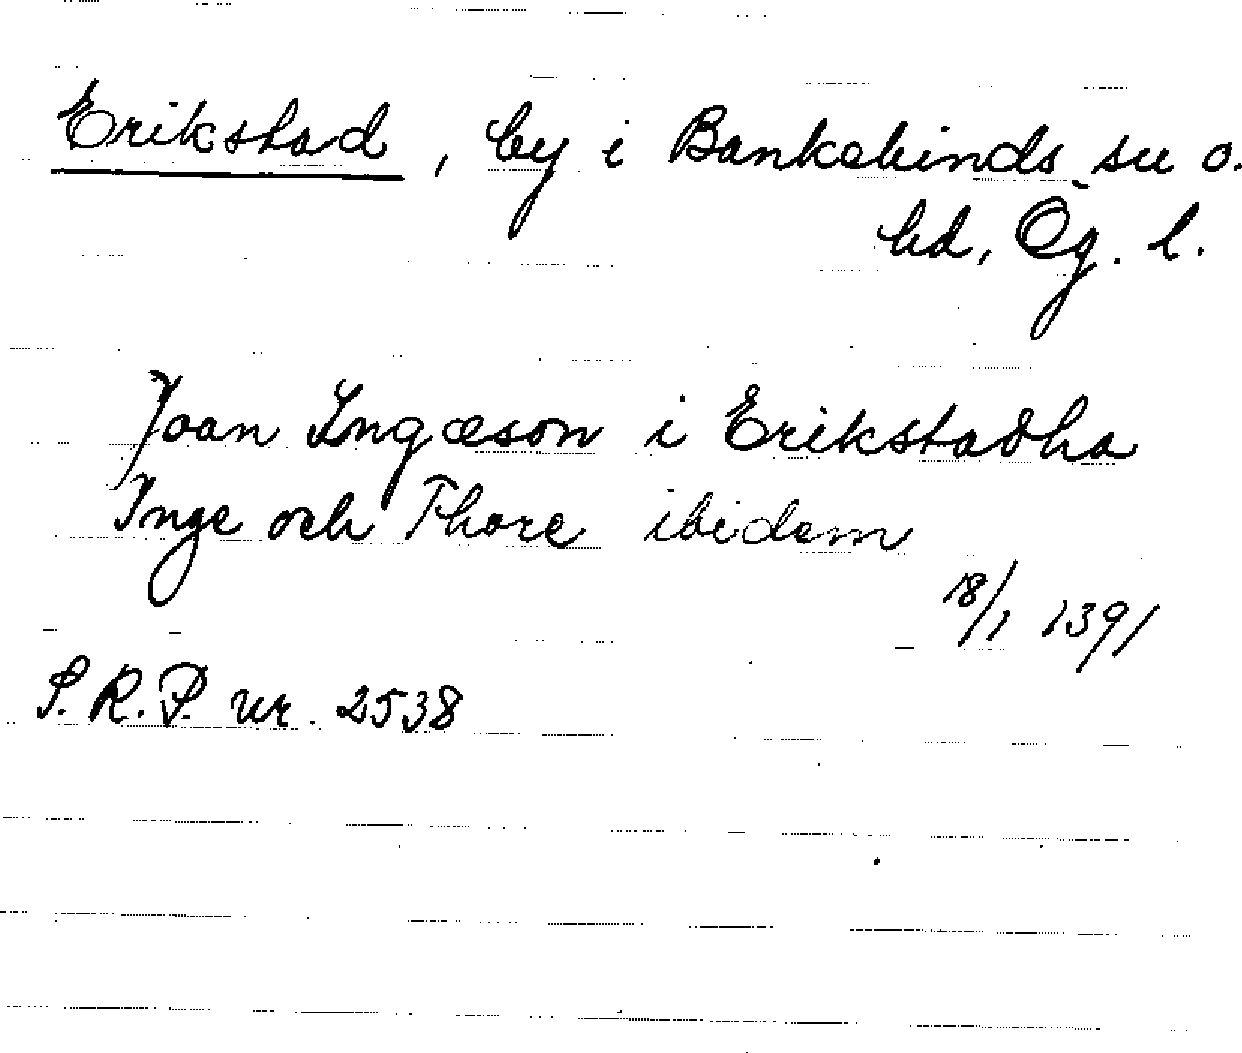 Erikstad, by i Bankekinds sn o.
hd, Ög. l.
Joan Ingæson i Erikstadha
Inge och Thore ibidem
18/1 1391
S.R.P. nr. 2538